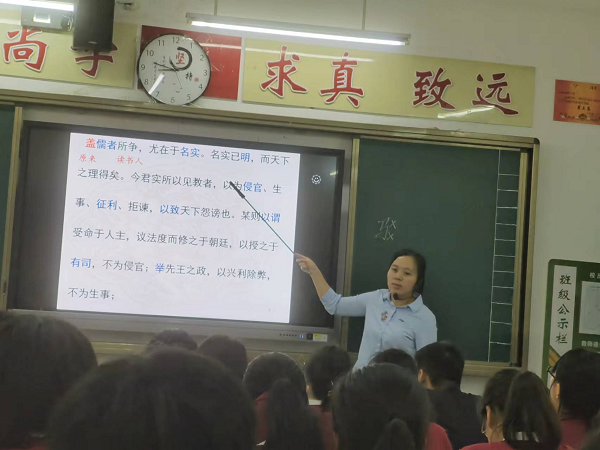 尚学
坚持
求真
致远
盖儒者所争，尤在于名实。名实已明，而天下
原来 读书人
之理得矣。今君实所以见教者，以为侵官、生
事、征利、拒谏，以致天下怨谤也。某则以谓
受命于人主，议法度而修之于朝廷，以授之于
有司，不为侵官；举先王之政，以兴利除弊，
不为生事；
班级公示栏